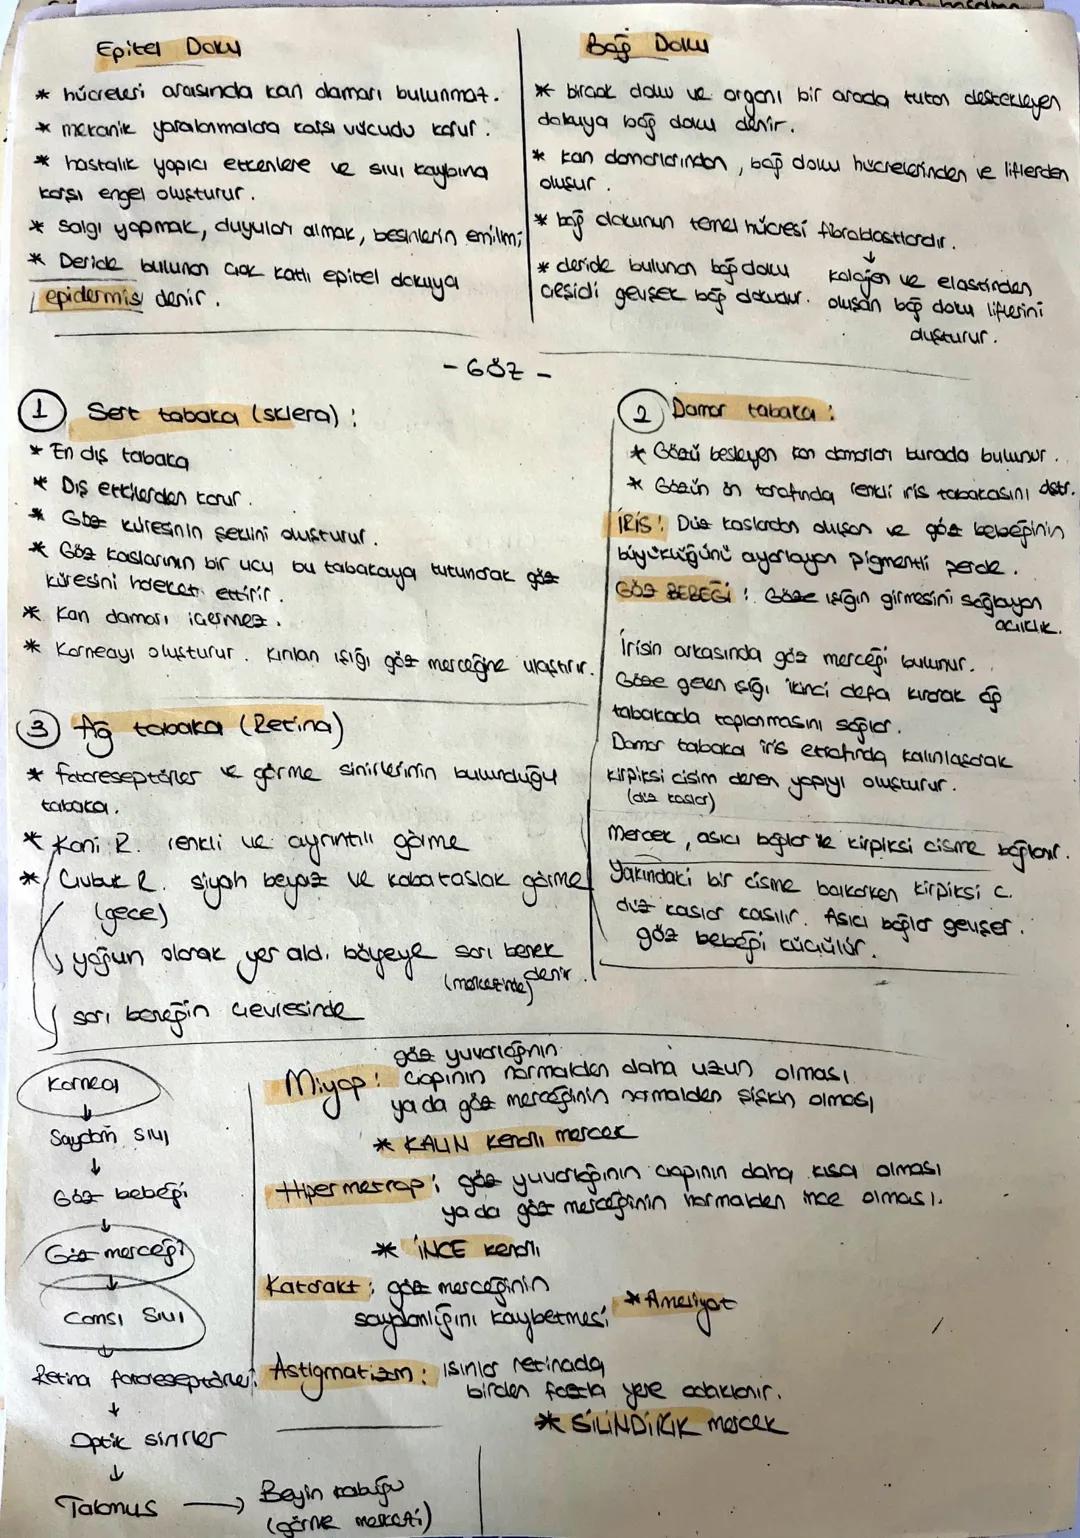 Epitel Doku
* hücreleri arasında kan damarı bulunmaz.
* mekanik yaralanmalara karşı vücudu korur.
* hastalık yapıcı etkenlere ve sıvı kaybına
karşı engel oluşturur.
* salgı yapmak, duyuları almak, besinlerin emilimi
* Deride bulunan çok katlı epitel dokuya
epidermis denir.
Bağ Doku
* birçok doku ve organı bir arada tutan destekleyen
dokuya bağ doku denir.
* kan damarlarından, bağ doku hücrelerinden ve liflerden
oluşur.
* bağ dokunun temel hücresi fibroblastlardır.
↓
kolajen ve elastinden
oluşan bağ doku liflerini
oluşturur.
* deride bulunan bağ doku
çeşidi gevşek bağ dokudur.
- GÖZ -
1 Sert tabaka (sklera) :
* En dış tabaka
* Dış etkilerden korur.
* Göz küresinin şeklini oluşturur.
* Göz kaslarının bir ucu bu tabakaya tutunarak göz
küresini hareket ettirir.
* Kan damarı içermez.
* Korneayı oluşturur. Kırılan ışığı göz merceğine ulaştırır.
2 Damar tabaka :
* Gözü besleyen kan damarları burada bulunur.
* Gözün ön tarafında renkli iris tabakasını olştr.
İRİS : Düz kaslardan oluşan ve göz bebeğinin
büyüklüğünü ayarlayan pigmentli perde.
GÖZ BEBEĞİ : Göze ışığın girmesini sağlayan
açıklık.
İrisin arkasında göz merceği bulunur.
Göze gelen ışığı ikinci defa kırarak ağ
tabakada toplanmasını sağlar.
Damar tabaka iris etrafında kalınlaşarak
kirpiksi cisim denen yapıyı oluşturur.
(düz kaslar)
Mercek, asıcı bağlar ile kirpiksi cisme bağlanır.
Yakındaki bir cisme bakarken kirpiksi c.
düz kaslar kasılır. Asıcı bağlar gevşer.
göz bebeği küçülür.
3 Ağ tabaka (Retina)
* fotoreseptörler ve görme sinirlerinin bulunduğu
tabaka.
* Koni R. renkli ve ayrıntılı görme
* Çubuk R. siyah beyaz ve kabataslak görme
(gece)
yoğun olarak yer ald. bölgeye sarı benek
(merkezinde) denir.
sarı beneğin çevresinde
Kornea
↓
Saydam sıvı
↓
Göz bebeği
↓
Göz merceği
↓
Camsı Sıvı
↓
Retina fotoreseptörleri
↓
Optik sinirler
↓
Talamus → Beyin kabuğu
(görme merkezi)
göz yuvarlağının
Miyop : çapının normalden daha uzun olması
ya da göz merceğinin normalden şişkin olması
* KALIN kenarlı mercek
Hipermetrop : göz yuvarlağının çapının daha kısa olması
ya da göz merceğinin normalden ince olması.
* İNCE kenarlı
Katarakt : göz merceğinin
saydamlığını kaybetmesi * Ameliyat
Astigmatizm : ışınlar retinada
birden fazla yere odaklanır.
* SİLİNDİRİK mercek